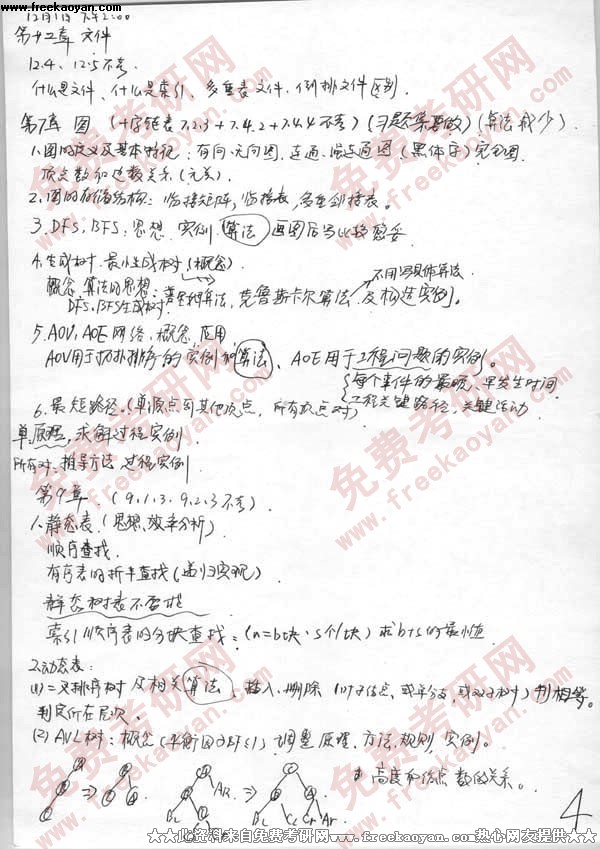 www.freekaoyan.com
12月1日 下午2:00
第十二章 文件
12.4、12.5不考.
什么是文件、什么是索引、多重表文件、倒排文件区别.
第7章 图 (十字链表7.2.3+7.4.2+7.4.4不考) (习题集要做) (算法减少).
1.图的定义及基本特征:有向、无向图、连通、强连通图(黑体字)完全图.
顶点数和边数关系(无关)
2.图的存储结构:邻接矩阵,邻接表,多重邻接表。
3.DFS,BFS,思想 实例 算法 画图后写比较稳妥
4.生成树、最小生成树(概念)
不同写具体算法
概念,算法的思想:普里姆算法,克鲁斯卡尔算法 及构造实例。
DFS,BFS生成树
5.AOV,AOE网络,概念,应用
AOV用于拓扑排序的实例和算法、AOE用于工程问题的实例。
每个事件的最晚、早发生时间
工程关键路径,关键活动
6.最短路径(单源点到其他顶点,所有顶点对)
单,原理,求解过程实例
所有对:推导方法 过程实例
第9章.(9.1.3、9.2.3不考)
1.静态表(思想,效率分析)
顺序查找.
有序表的折半查找(递归实现)
静态树表不要求
索引顺序表的分块查找:(n=b块·s个/块) 求b+s的最小值
2.动态表:
(1)二叉排序树 及相关算法、插入、删除 判相等。
判定所在层次.
(2)AVL树:概念(平衡因子BF≤1) 调整原理、方法,规则,实例。
高度和结点数的关系。
4
★☆此资料来自免费考研网www.freekaoyan.com热心网友提供★☆
免费考研网
www.freekaoyan.com